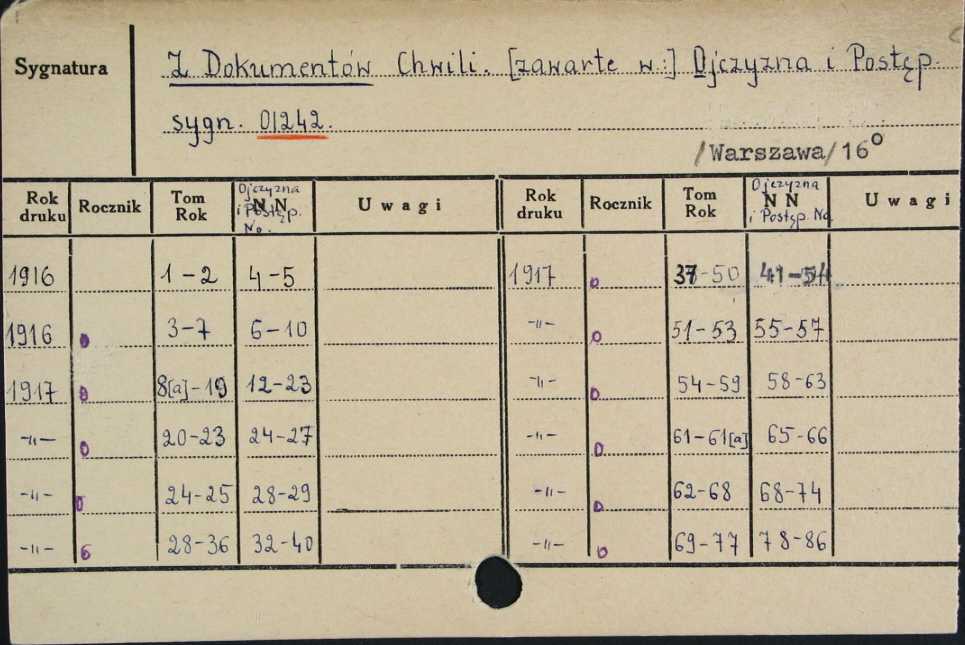 Sygnatura
Z Dokumentów Chwili. [zawarte w:] Ojczyzna i Postęp.
sygn. 01242.
/Warszawa/16°
Rok druku Rocznik Tom Rok Ojczyzna i Postęp. No. NN Uwagi Rok druku Rocznik Tom Rok Ojczyzna i Postęp. No NN Uwagi
1916 1-2 4-5 1917 0 37-50 41-54
1916 0 3-7 6-10 -"- 0 51-53 55-57
1917 0 8[a]-19 12-23 -"- 0 54-59 58-63
-"- 0 20-23 24-27 -"- 0 61-61[a] 65-66
-"- 0 24-25 28-29 -"- 0 62-68 68-74
-"- 6 28-36 32-40 -"- 0 69-77 78-86